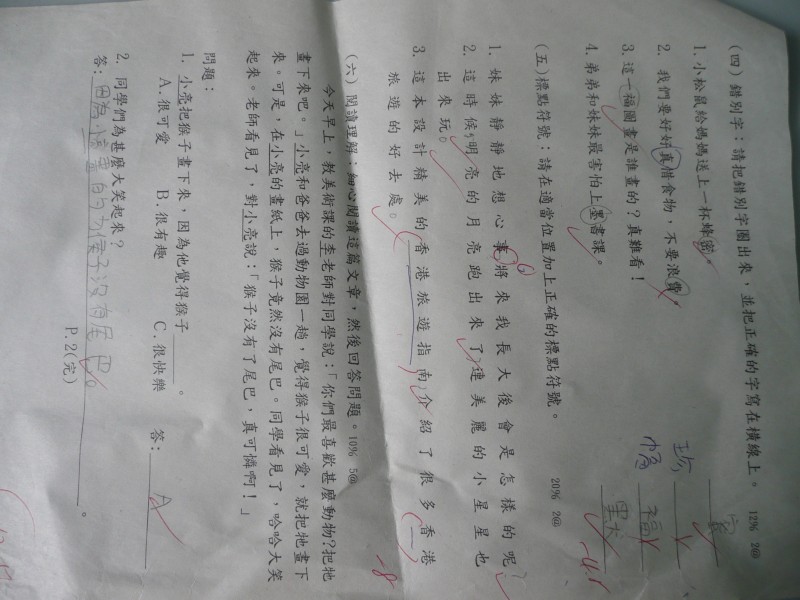 (四) 錯別字：請把錯別字圈出來，並把正確的字寫在橫線上。 12% 2@
1. 小松鼠給媽媽送上一杯蜂密。
2. 我們要好好真惜食物，不要浪費。 珍
3. 這一福圖畫是誰畫的？真難看！ 幅 福
4. 弟弟和妹妹最害怕上墨書課。
-4
(五) 標點符號：請在適當位置加上正確的標點符號。 20% 2@
1. 妹妹靜靜地想心事將來我長大後會是怎樣的呢?
2. 這時候，明亮的月亮跑出來了連美麗的小星星也
出來玩。
3. 這本設計精美的香港旅遊指南介紹了很多香港
旅遊的好去處。
-8
(六) 閱讀理解：細心閱讀這篇文章，然後回答問題。10% 5@
今天早上，教美術課的李老師對同學說：「你們最喜歡甚麼動物?把牠
畫下來吧。」小亮和爸爸去過動物園一趟，覺得猴子很可愛，就把牠畫下
來。可是，在小亮的畫紙上，猴子竟然沒有尾巴。同學看見了，哈哈大笑
起來。老師看見了，對小亮說：「猴子沒有了尾巴，真可憐啊！」
問題：
1. 小亮把猴子畫下來，因為他覺得猴子 。
A. 很可愛 B. 很有趣 C. 很快樂 答： A
2. 同學們為甚麼大笑起來？
答： 因為小亮畫的猴子沒有尾巴。 。
P.2(完)